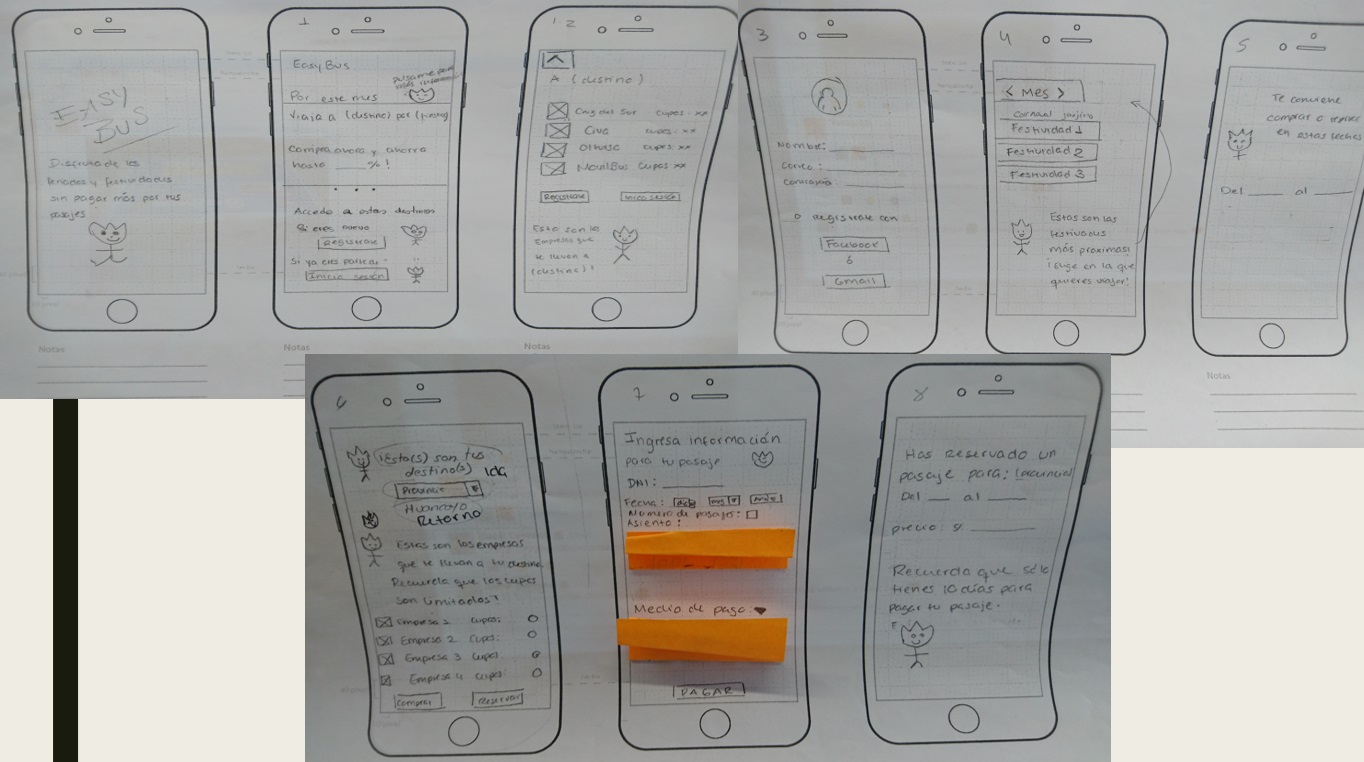 EASY
BUS
Disfruta de los
feriados y festividades
sin pagar más por tus
pasajes
Notas
1
EasyBus
púlsame para
más información
Por este mes
Viaja a (destino) por
Compra ahora y ahorra
hasta ____ % !
• • •
Accede a estos destinos
Si eres nuevo
REGISTRATE
Si ya eres parte
Inicia sesión
Notas
1.2
A (destino)
Cruz del Sur cupos: xx
Civa cupos: xx
Oltursa cupos: xx
MovilBus cupos: xx
Registrate
Inicia sesión
Estas son las
Empresas que
te llevan a
(destino)!
Notas
3
Nombre: ______
Correo : ______
Contraseña ______
o registrate con
Facebook
ó
Gmail
4
< Mes >
Festividad 1
Festividad 2
Festividad 3
Estas son las
festividades
más proximas!
¡Elige en la que
quieres viajar!
5
Te conviene
comprar o
en estas fechas
Del ____ al ____
Notas
6
¡Esto(s) son tus
destino(s)
Ida
Provincia
Huancayo
Retorno
Estas son las empresas
que te llevan a tu destino
Recuerda que los cupos
son limitados!
Empresa 1 Cupos:
Empresa 2 Cupos:
Empresa 3 Cupos:
Empresa 4 Cupos:
Comprar
Reservar
7
Ingresa información
para tu pasaje
DNI: ______
Fecha: día mes año
Número de pasajes:
Asiento:
Medio de pago
PAGAR
8
Has Reservado un
pasaje para: (provincia)
Del ___ al ____
precio: s/. ______
Recuerda que sólo
tienes 10 días para
pagar tu pasaje.